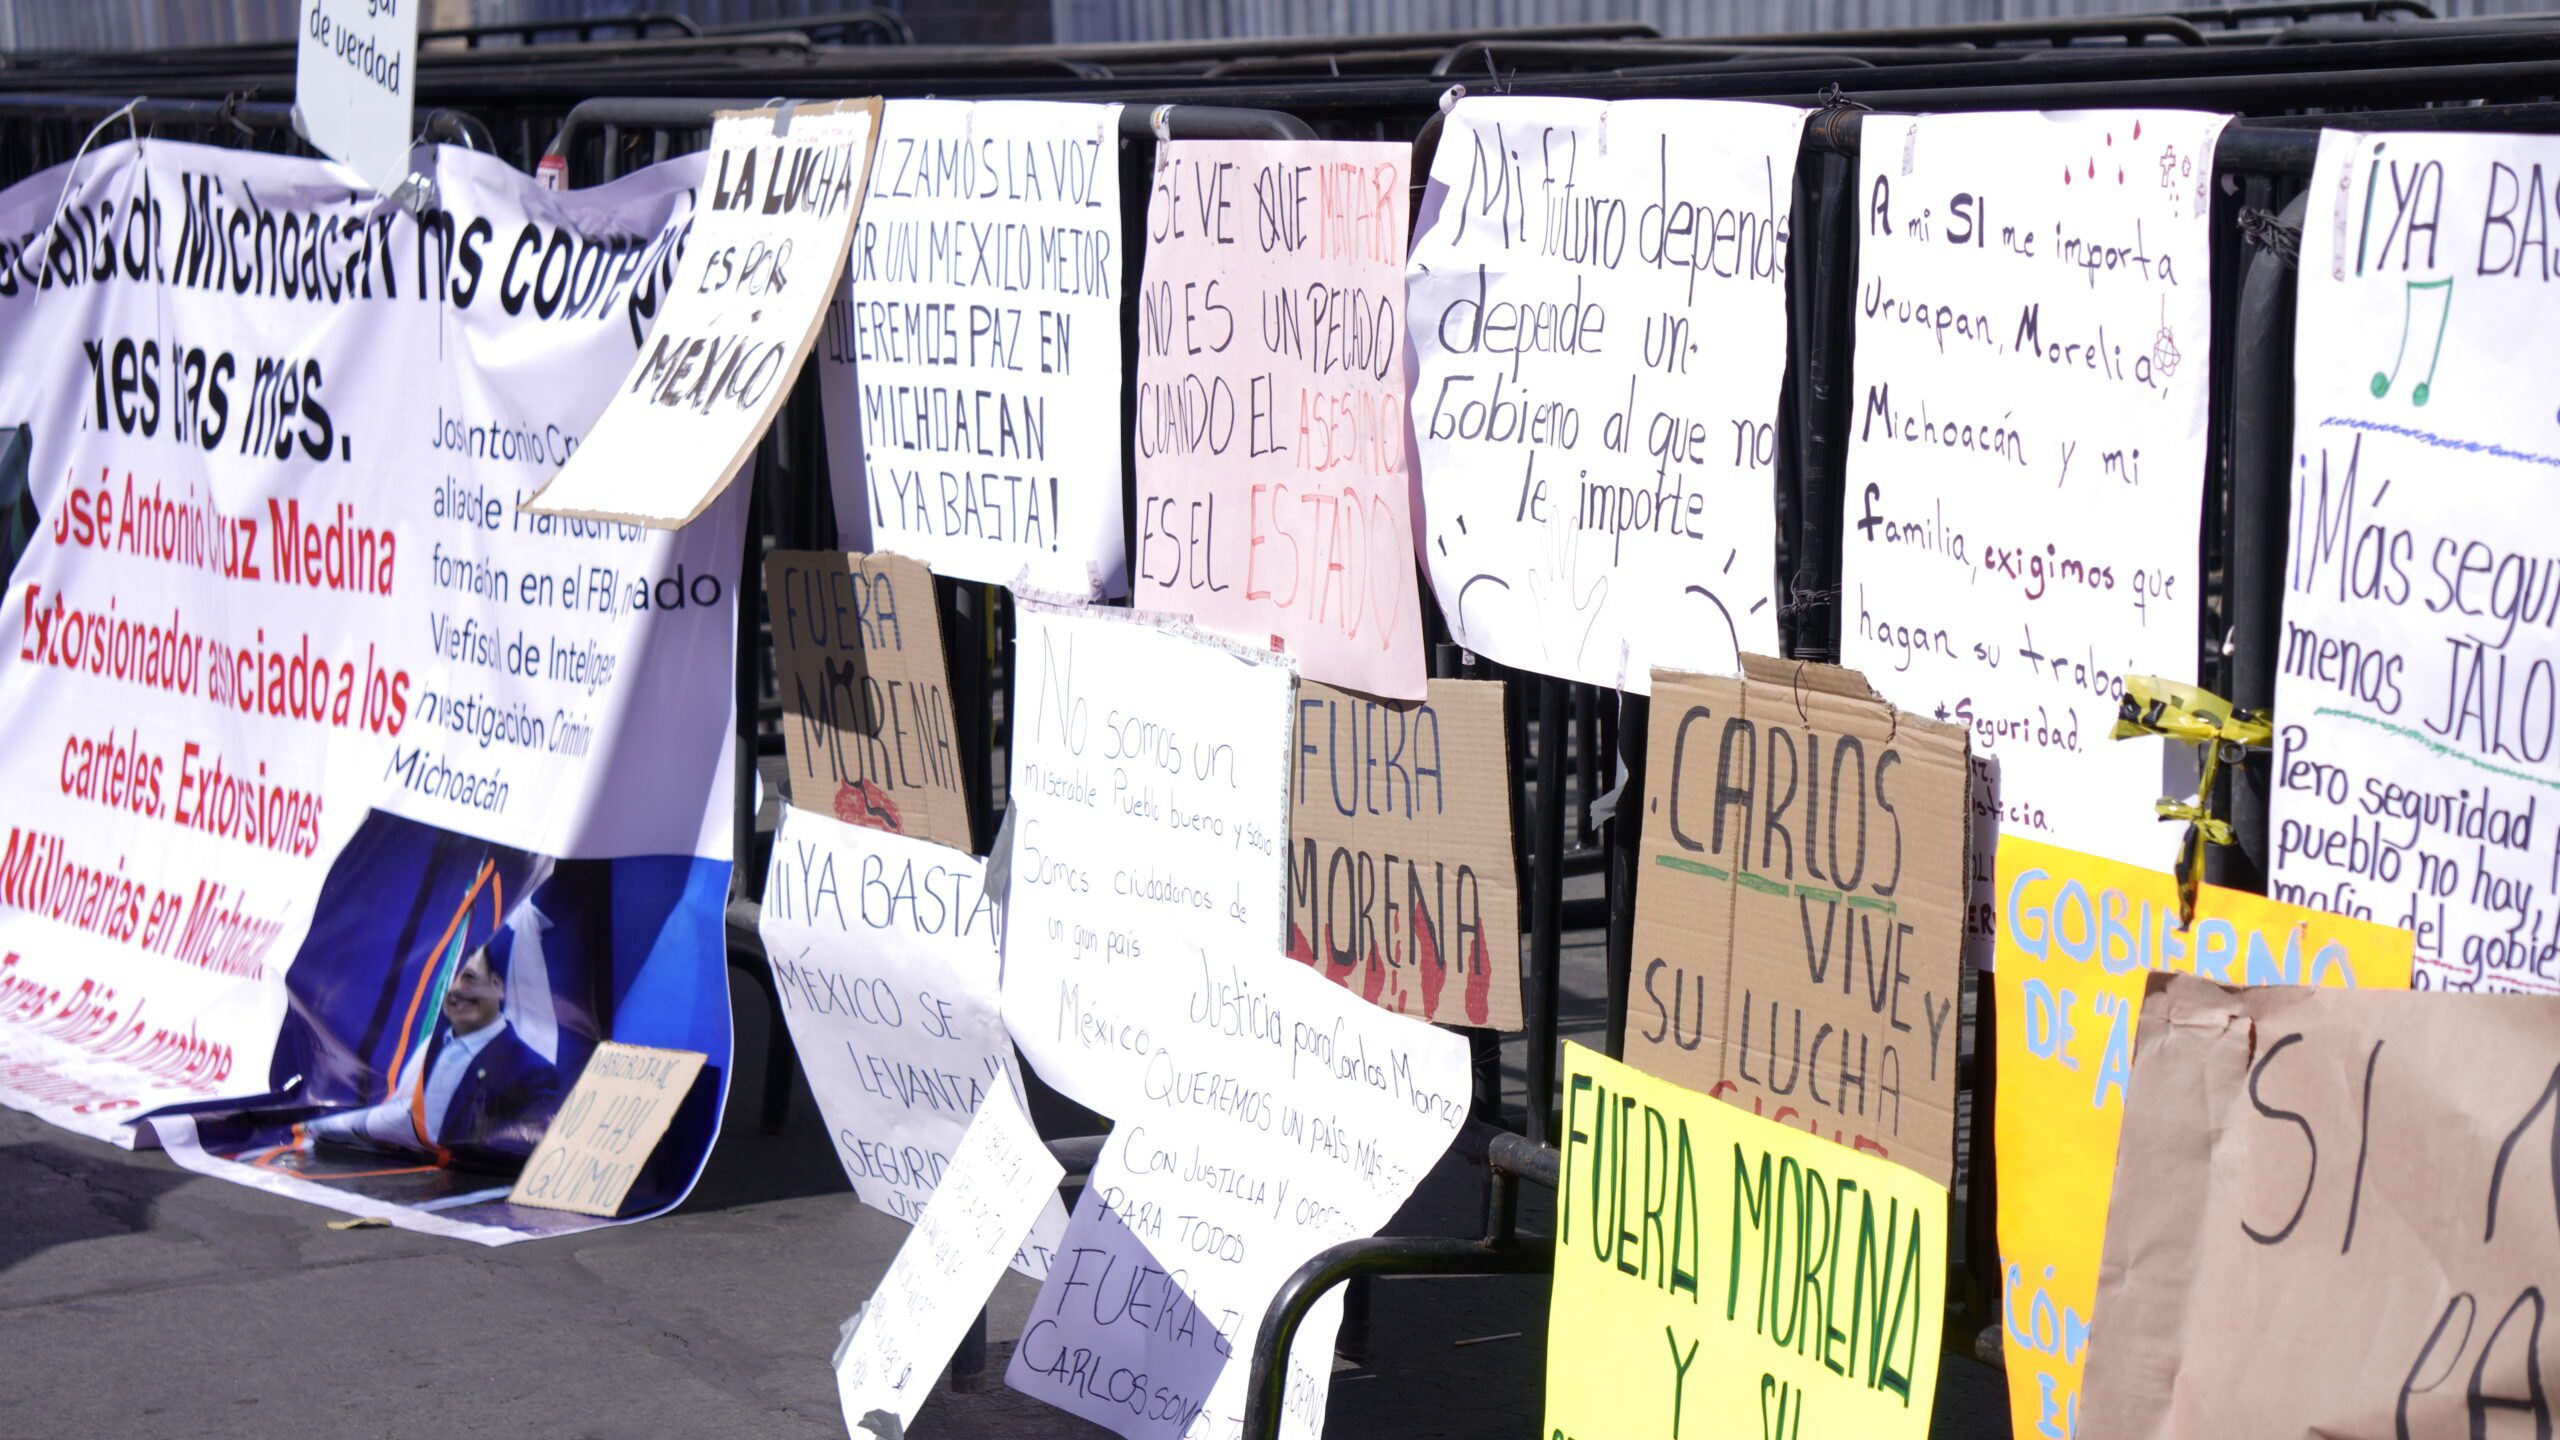 de verdad
de Michoacán nos cobra
mes tras mes.
José Antonio Cruz Medina
Extorsionador asociado a los
carteles. Extorsiones
Millonarias en Michoacán
Torres Piña lo protege
aliado de
formación en el FBI,
de
Investigación
Michoacán
LA LUCHA
ES POR
MÉXICO
LZAMOS LA VOZ
OR UN MEXICO MEJOR
QUEREMOS PAZ EN
MICHOACAN
¡YA BASTA!
SE VE QUE MATAR
NO ES UN PECADO
CUANDO EL ASESINO
ES EL ESTADO
Mi futuro depende
depende un
Gobierno al que no
le importe
A mi SI me importa
Uruapan, Morelia,
Michoacán y mi
familia, exigimos que
hagan su
*Seguridad.
¡YA
¡Más
menos
Pero seguridad
pueblo no hay,
del
FUERA
MORENA
NO HAY
QUIMIO
¡¡YA BASTA!
MÉXICO SE
LEVANTA!!
No somos un
miserable Pueblo bueno y sabio
Somos ciudadanos de
un giun país
México
FUERA
MORENA
Justicia para Carlos Manzo
QUEREMOS UN PAÍS MÁS
CON JUSTICIA Y
PARA TODOS
FUERA EL
CARLOS SOMOS
.CARLOS
VIVE Y
SU LUCHA
SIGUE
FUERA MORENA
Y SU
GOBIERNO
DE "A
SI